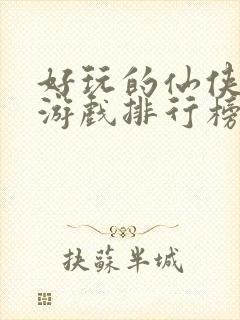 好玩的仙侠
游戏排行榜
扶蘇半城